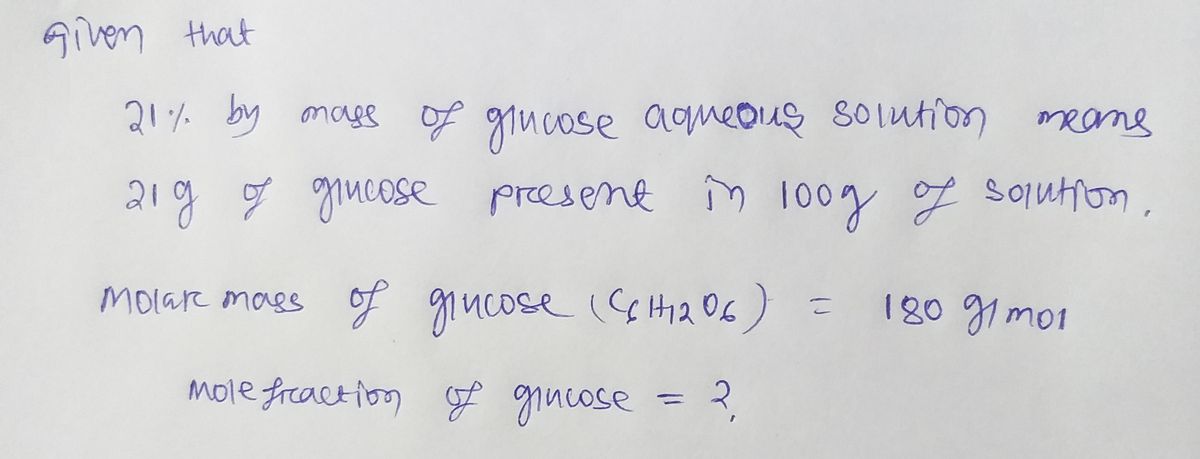 Given that
21% by mass of glucose aqueous solution means
21g of glucose present in 100g of solution.
Molar mass of glucose (C6H12O6) = 180 g/mol
Mole fraction of glucose = ?